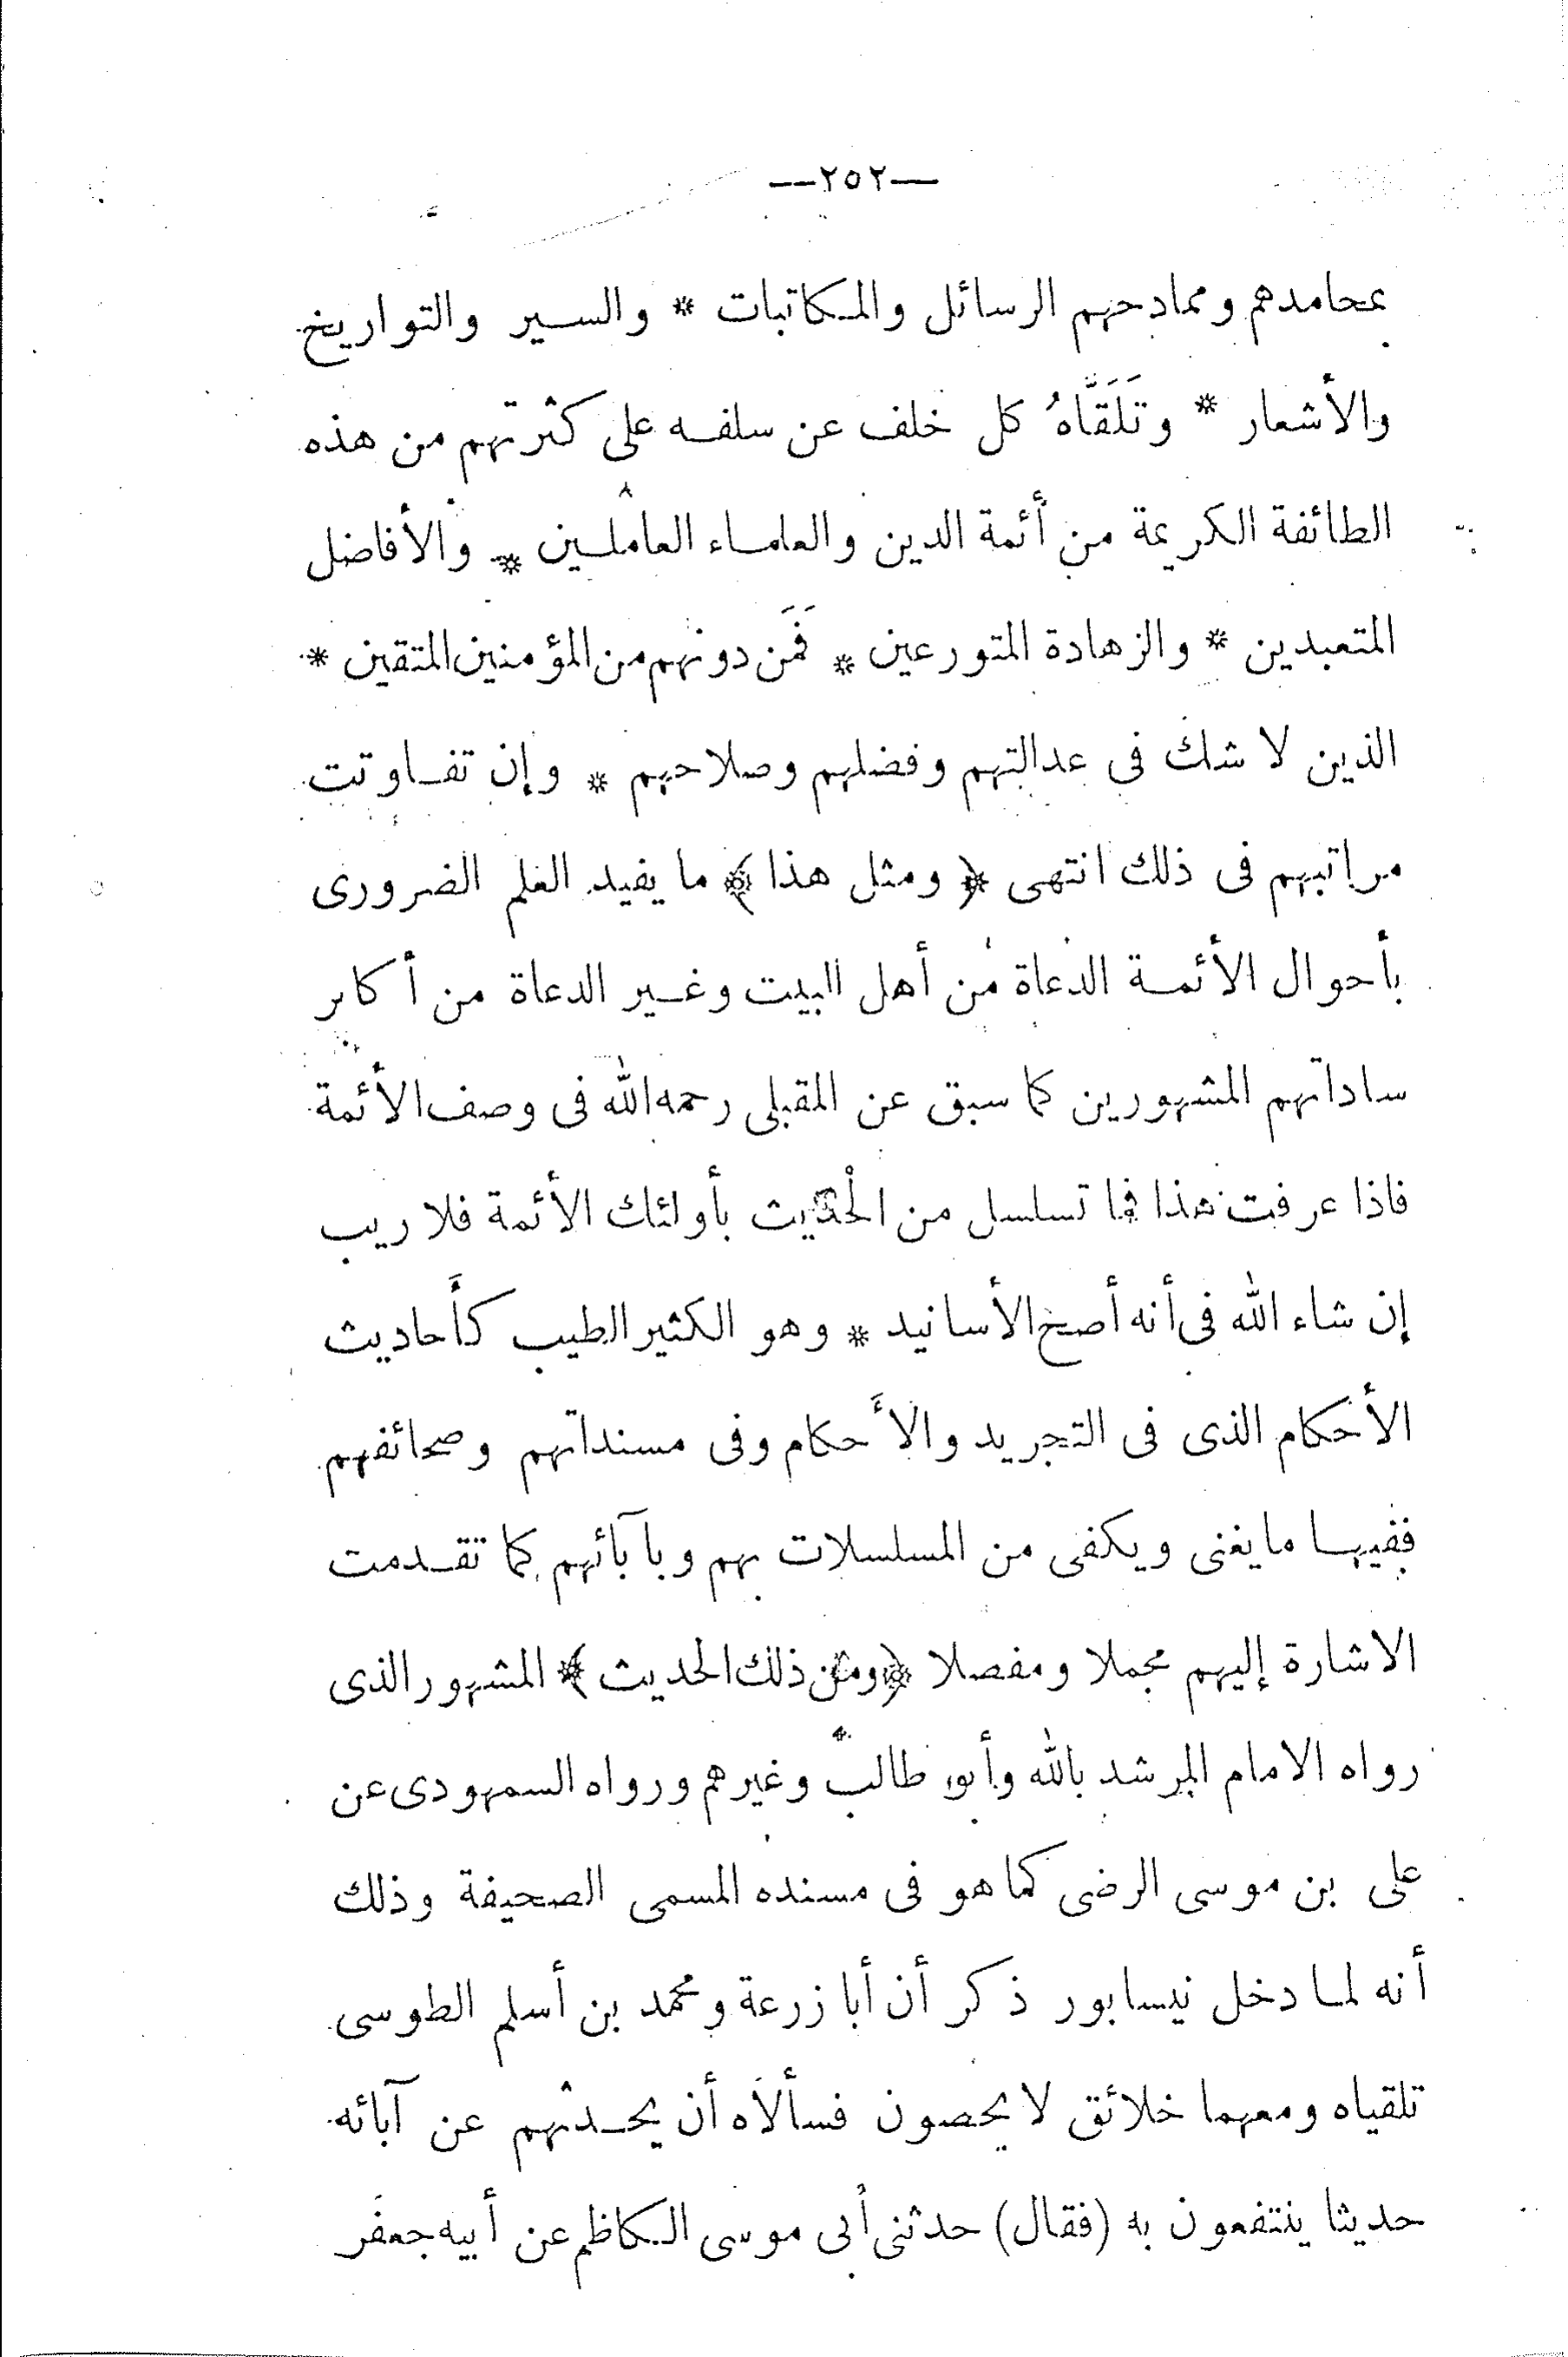 —٢٥٢—
بمحامدهم وممادحهم الرسائل والمكاتبات * والسير والتواريخ
والأشعار * وتَلَقَّاهُ كل خلف عن سلفه على كثرتهم من هذه
الطائفة الكريمة من أئمة الدين والعلماء العاملين * والأفاضل
المتعبدين * والزهادة المتورعين * فَمَن دونهم من المؤمنين المتقين *
الذين لا شك فى عدالتهم وفضلهم وصلاحهم * وإن تفاوتت
مراتبهم فى ذلك انتهى ﴿ ومثل هذا ﴾ ما يفيد العلم الضرورى
بأحوال الأئمة الدعاة من أهل البيت وغير الدعاة من أكابر
ساداتهم المشهورين كما سبق عن المقبلى رحمه الله فى وصف الأئمة
فاذا عرفت هذا فما تسلسل من الْحديث بأولئك الأئمة فلا ريب
إن شاء الله فى أنه أصح الأسانيد * وهو الكثير الطيب كأَحاديث
الأحكام الذى فى التجريد والأَحكام وفى مسنداتهم وصحائفهم
ففيها ما يغنى ويكفى من المسلسلات بهم وبآبائهم كما تقدمت
الاشارة إليهم مجملا ومفصلا ﴿ ومن ذلك الحديث ﴾ المشهور الذى
رواه الامام المرشد بالله وأبو طالب وغيرهم ورواه السمهودى عن
على بن موسى الرضى كما هو فى مسنده المسمى الصحيفة وذلك
أنه لما دخل نيسابور ذكر أن أبا زرعة ومحمد بن أسلم الطوسى
تلقياه ومعهما خلائق لا يحصون فسألاه أن يحدثهم عن آبائه
حديثا ينتفعون به (فقال) حدثنى أبى موسى الكاظم عن أبيه جعفر